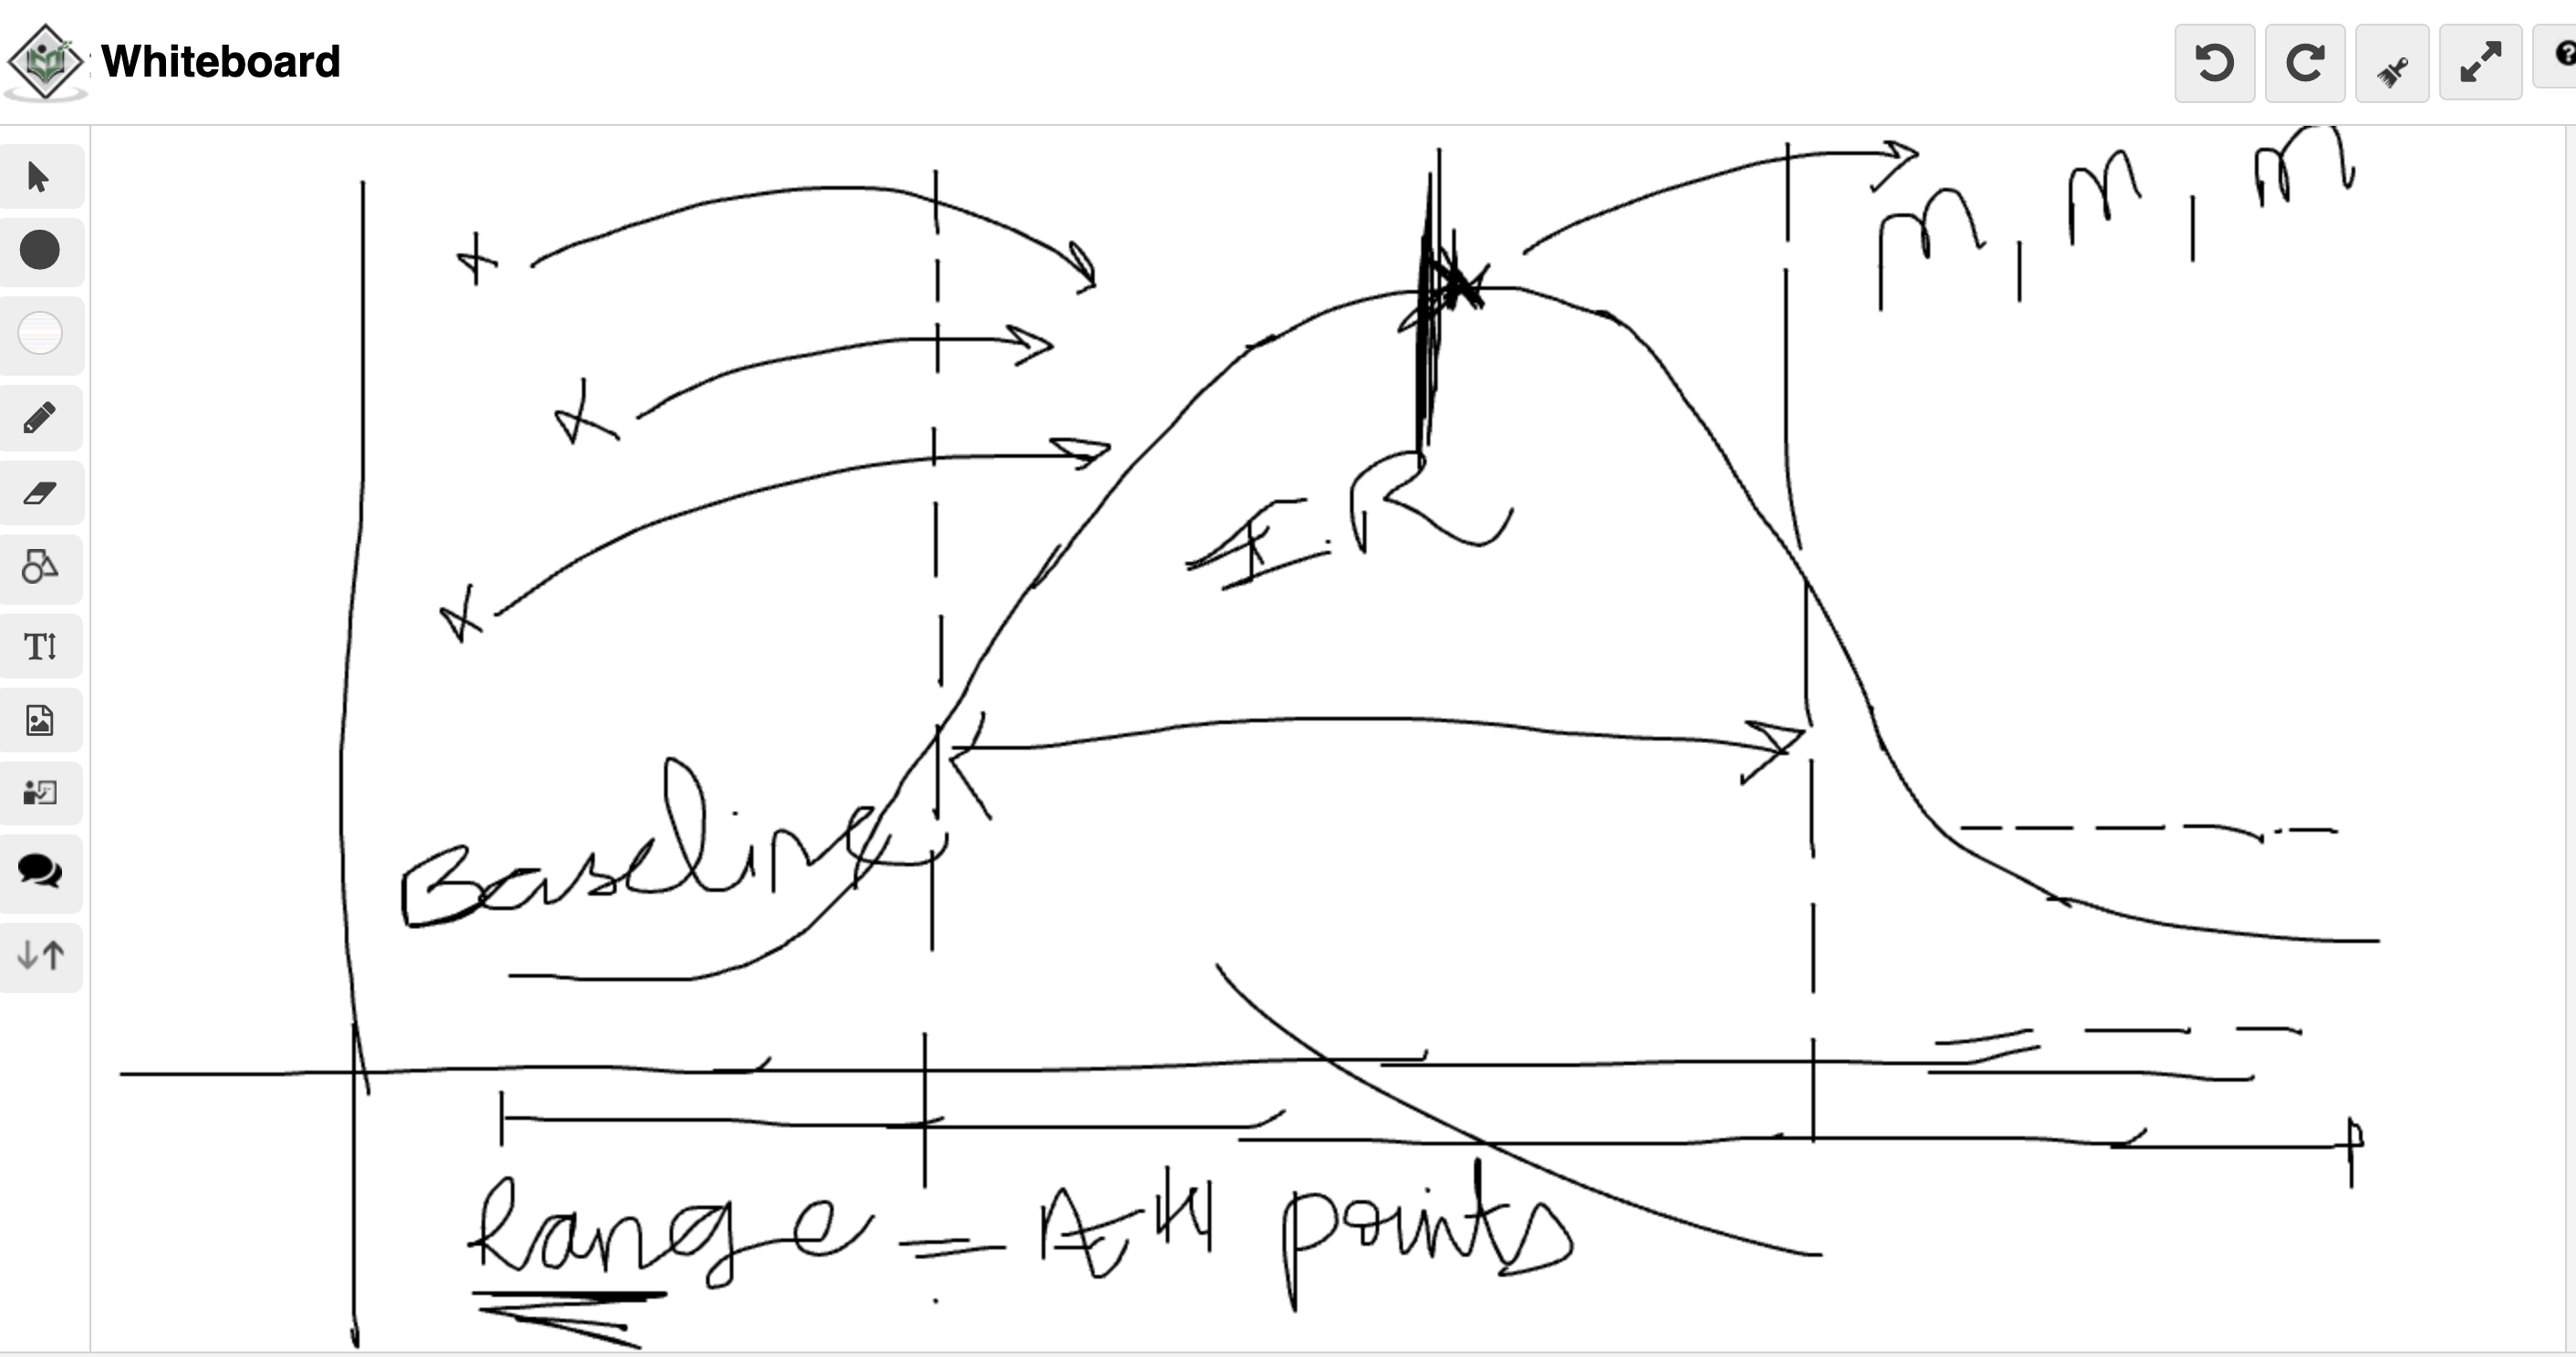 Whiteboard
m, m, m
I.R
Baseline
Range = All points